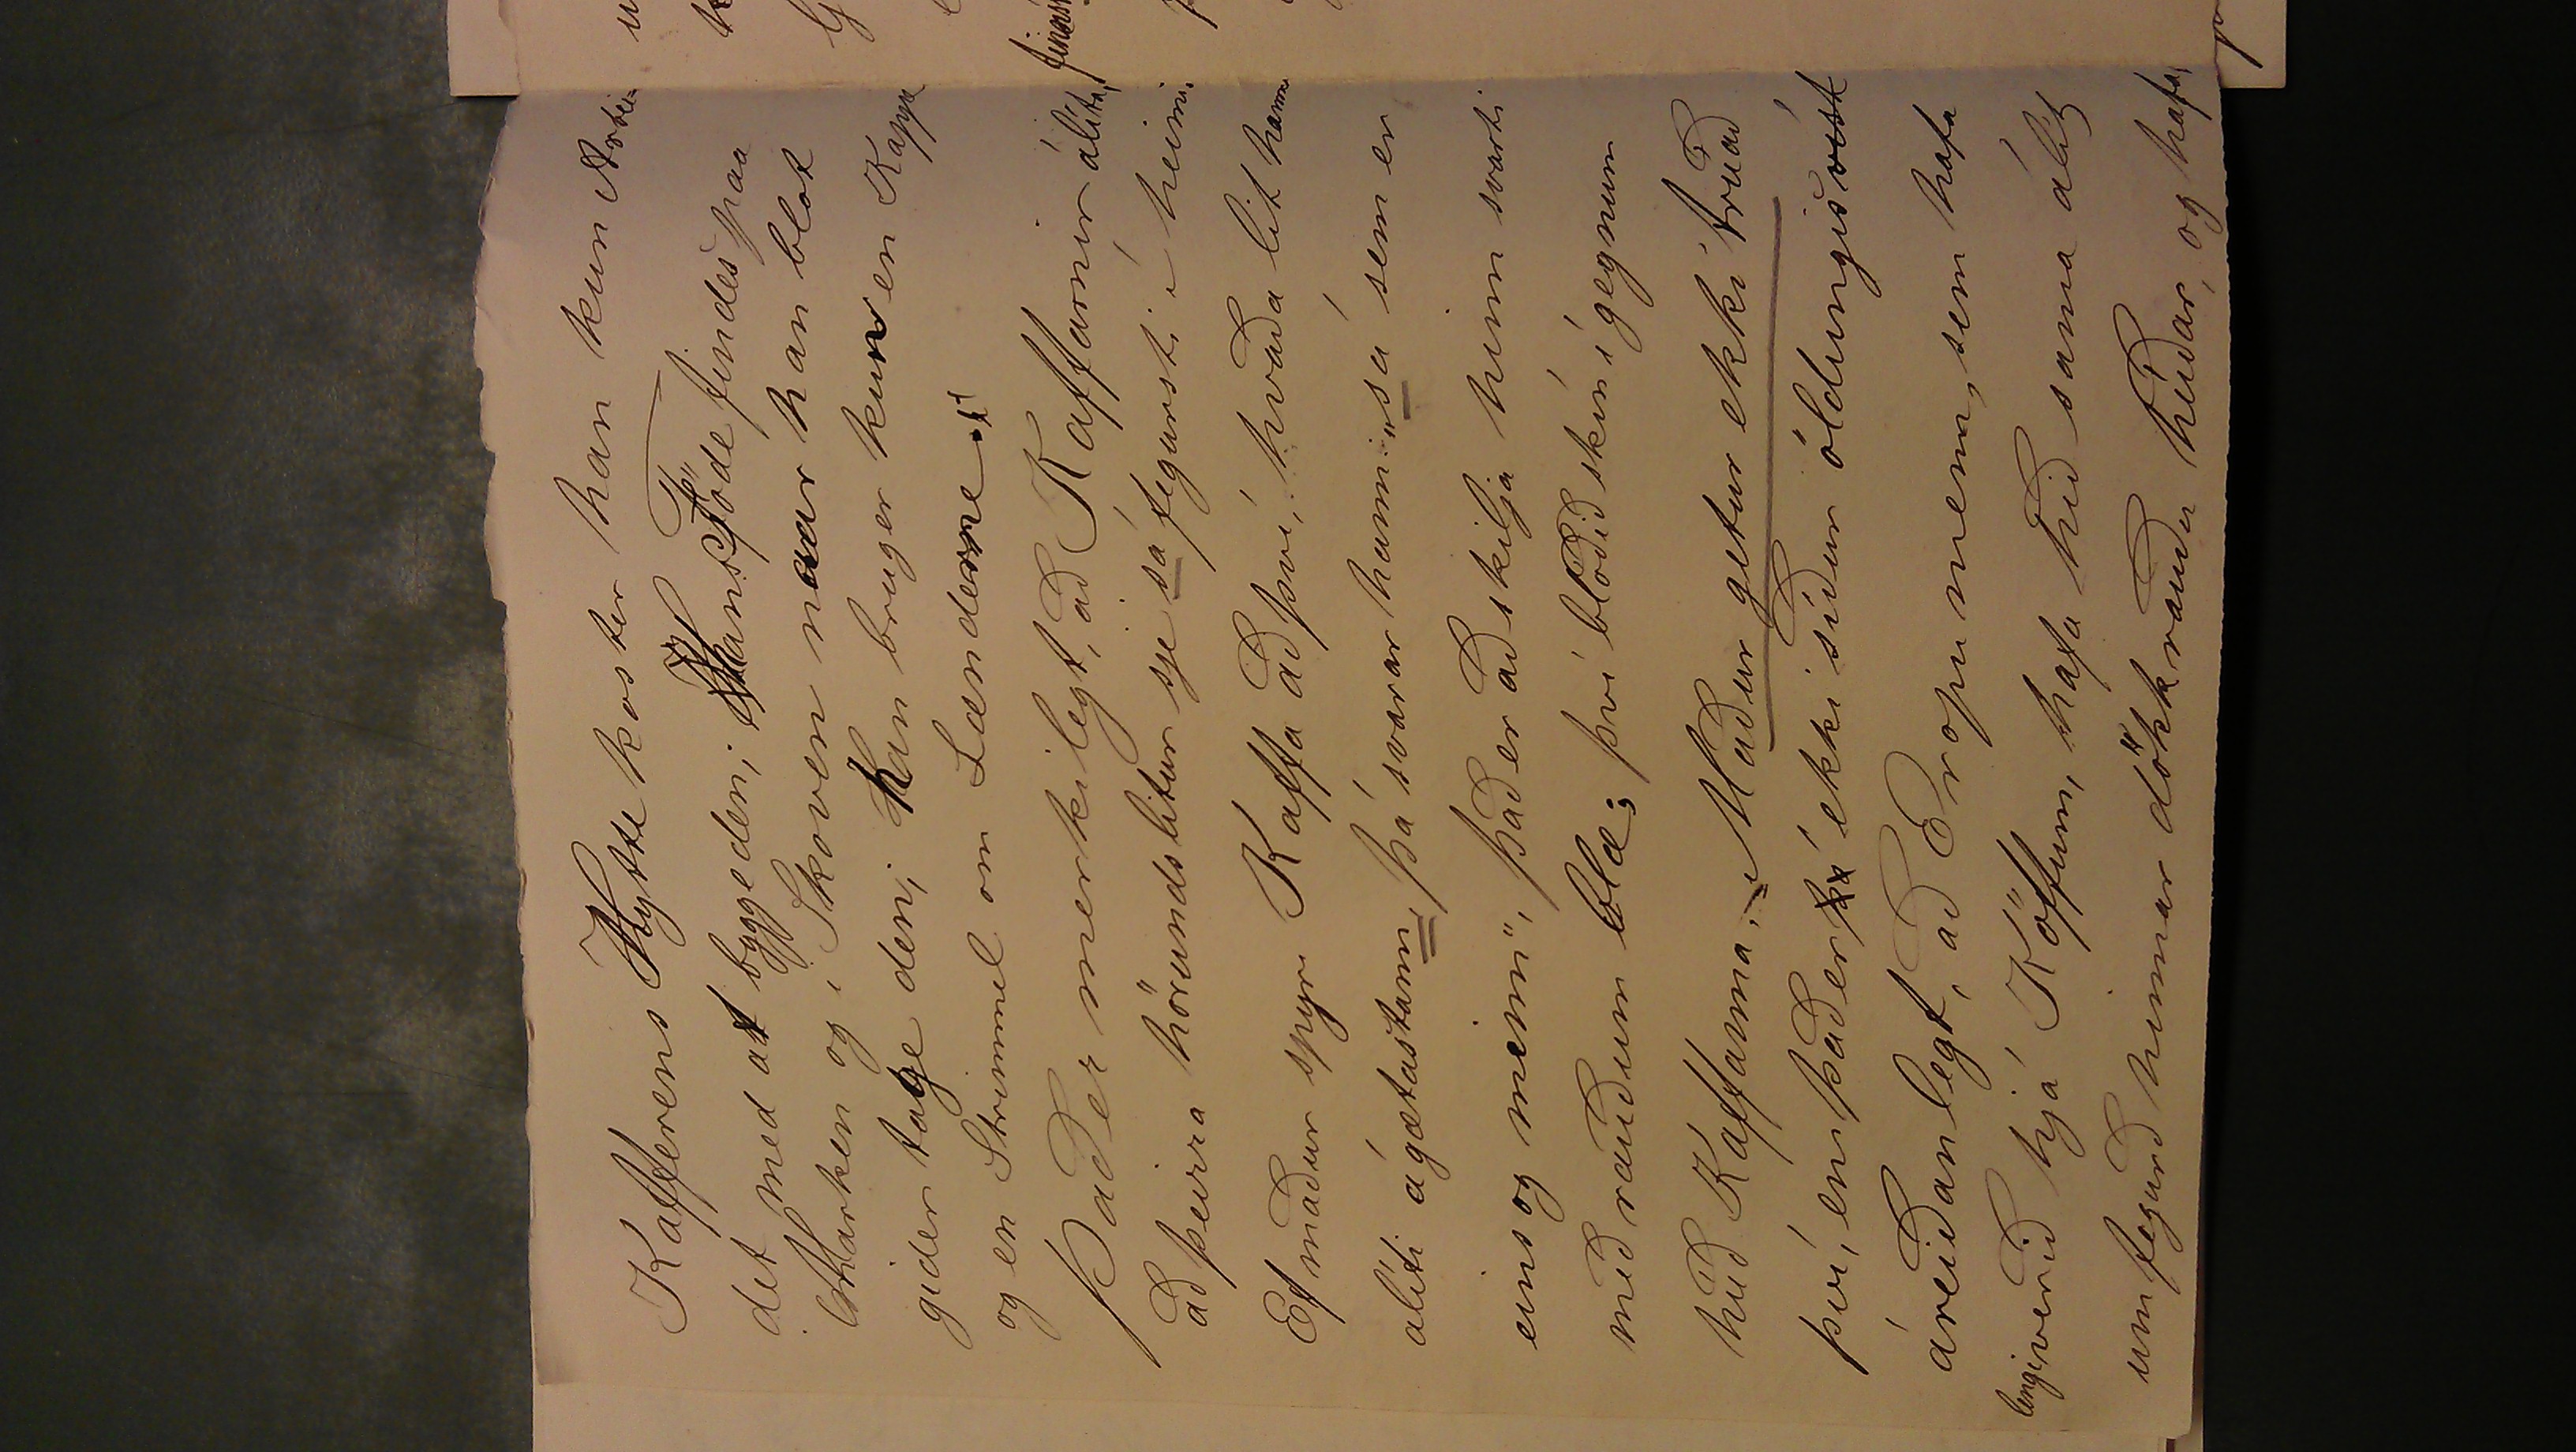 Kafferens Hytte koster han kun Arbei-
det med at bygge den; Hans Föde findes paa
Marken og i Skoven naar han blot
gider tage den; Han bruger kun en Kappe
og en Strimmel om Lænderne."
Það er merkilegt, að Kaffarnir álíta,
að þeirra hörundslitur sje sá fegursti í heimi.
Ef maður spyr Kaffa að því, hvaða lit hann
áliti ágætastann, þá svarar hann: "sá sem er
eins og minn", það er að skilja hinn svarti
með rauðum blæ; því blóðið skín í gegnum
húð Kaffanna. - Maður getur ekki trúað
því, en það er ekki síður öldungis víst
áreiðanlegt, að Evropu menn, sem hafa
lengi verið hjá Köffum, hafa hið sama álit
um fegurð hinnar dökk rauðu húðar, og hafa